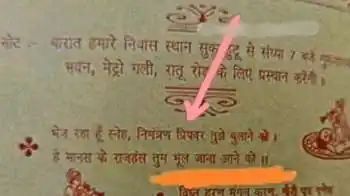 नोट :- बारात हमारे निवास स्थान सुकुरहुटू से संध्या 7 बजे
भवन, मेट्रो गली, रातू रोड के लिए प्रस्थान करेगी।
भेज रहा हूँ स्नेह, निमंत्रण प्रियवर तुझे बुलाने को।
हे मानस के राजहंस तुम भूल जाना आने को॥
विघ्न हरण मंगल करण,